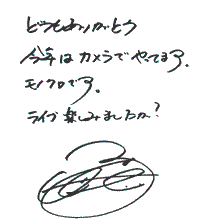 どうもありがとう
今年はカメラでやってます.
モノクロです.
ライブ楽しみましたか?